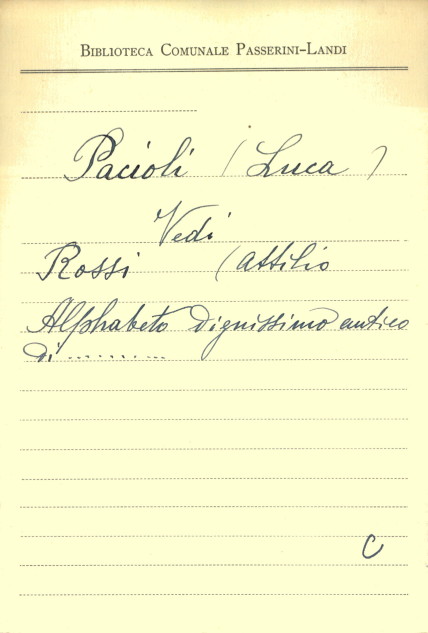 BIBLIOTECA COMUNALE PASSERINI-LANDI
Pacioli (Luca)
Vedi
Rossi (Attilio
Alphabeto Dignissimo antico
di .........
C